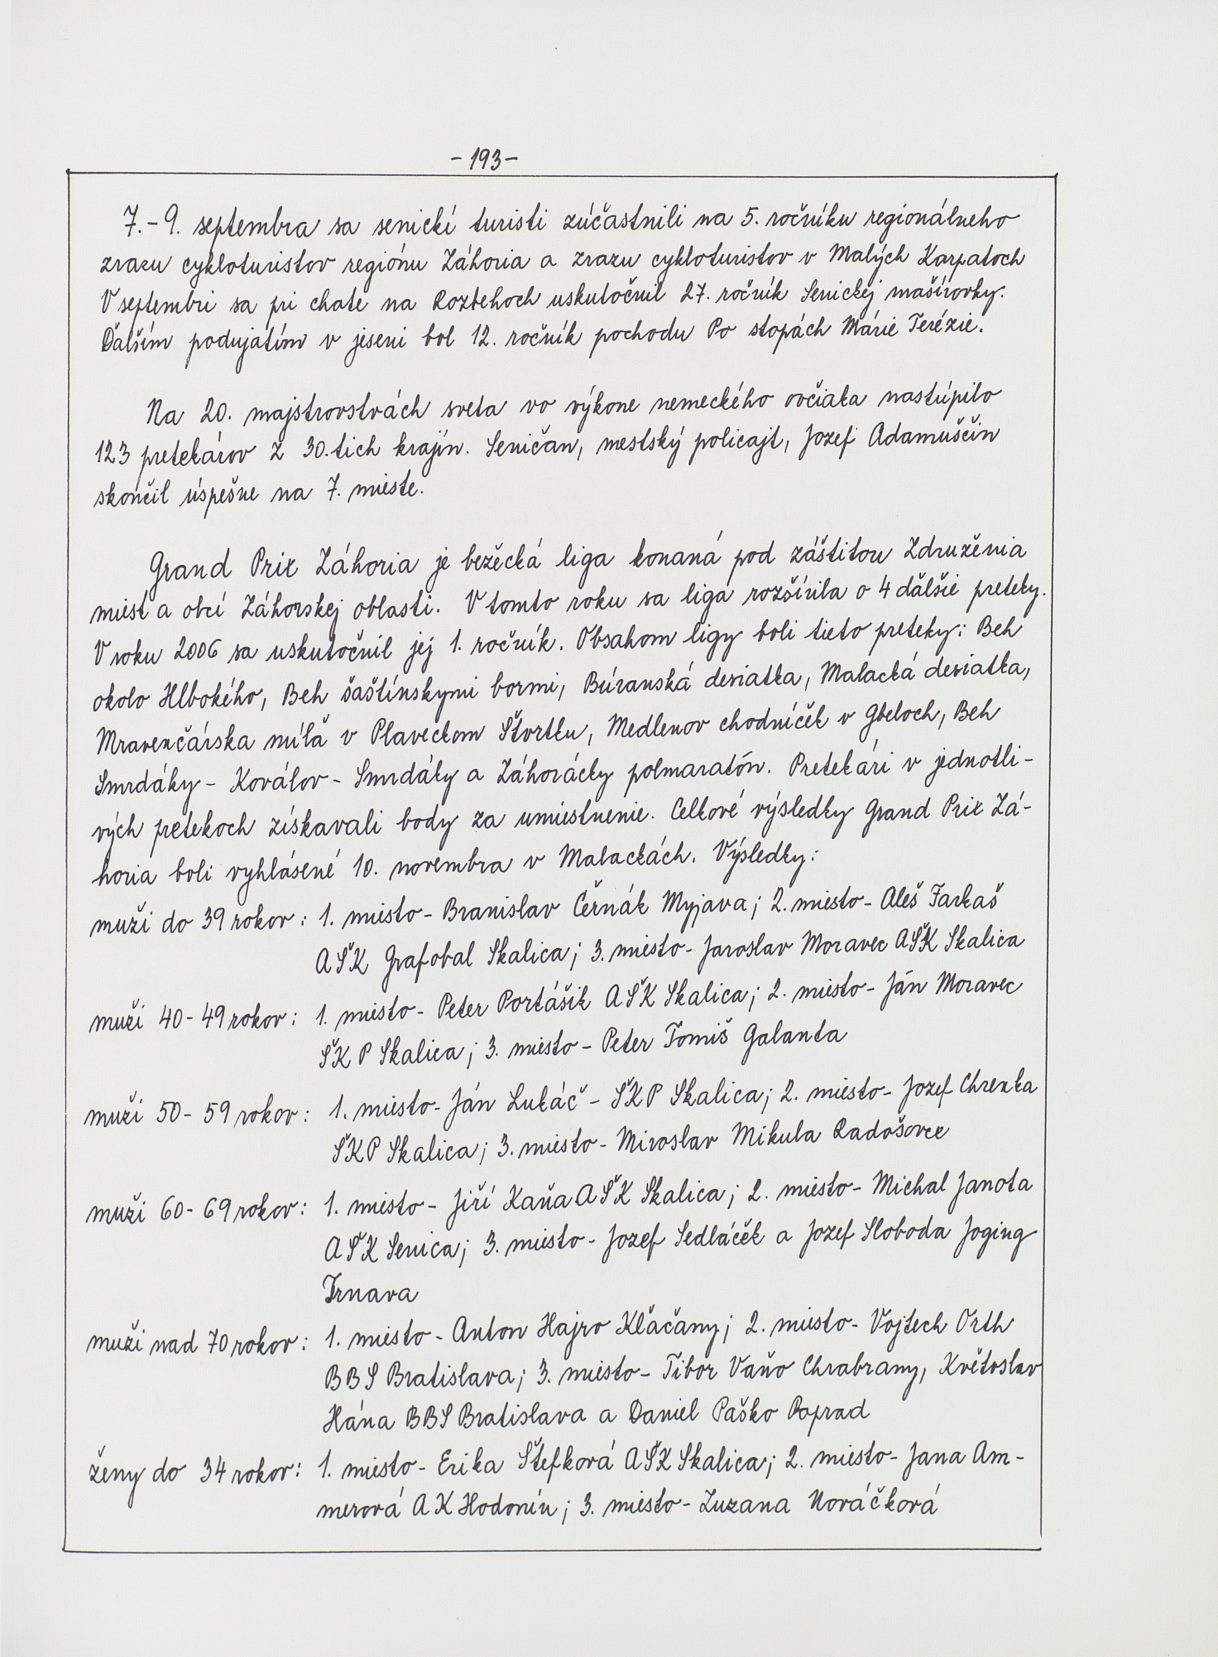 - 193 -
7. - 9. septembra sa senickí turisti zúčastnili na 5. ročníku regionálneho
zrazu cykloturistov regiónu Záhoria a zrazu cykloturistov v Malých Karpatoch
V septembri sa pri chate na Rozbehoch uskutočnil 27. ročník Senickej mašírovky.
Ďalším podujatím v jeseni bol 12. ročník pochodu Po stopách Márie Terézie.
Na 20. majstrovstvách sveta vo výkone nemeckého ovčiaka nastúpilo
123 pretekárov z 30.tich krajín. Seničan, mestský policajt, Jozef Adamuščin
skončil úspešne na 7. mieste.
Grand Prix Záhoria je bežecká liga konaná pod záštitou Združenia
miest a obcí Záhorskej oblasti. V tomto roku sa liga rozšírila o 4 ďalšie preteky.
V roku 2006 sa uskutočnil jej 1. ročník. Obsahom ligy boli tieto preteky: Beh
okolo Hlbokého, Beh šaštínskymi bormi, Búranská deviatka, Malacká deviatka,
Mravenčárska míľa v Plaveckom Štvrtku, Medlenov chodníček v Gbeloch, Beh
Smrdáky - Koválov - Smrdáky a Záhorácky polmaratón. Pretekári v jednotli-
vých pretekoch získavali body za umiestnenie. Celkové výsledky Grand Prix Zá-
horia boli vyhlásené 10. novembra v Malackách. Výsledky:
muži do 39 rokov: 1. miesto - Branislav Černák Myjava; 2. miesto - Aleš Farkaš
AŠK Grafobal Skalica; 3. miesto - Jaroslav Moravec AŠK Skalica
muži 40 - 49 rokov: 1. miesto - Peter Portášik AŠK Skalica; 2. miesto - Ján Moravec
ŠK P Skalica; 3. miesto - Peter Tomiš Galanta
muži 50 - 59 rokov: 1. miesto - Ján Lukáč - ŠKP Skalica; 2. miesto - Jozef Chrenka
ŠKP Skalica; 3. miesto - Miroslav Mikula Radošovce
muži 60 - 69 rokov: 1. miesto - Jiří Kaňa AŠK Skalica; 2. miesto - Michal Janota
AŠK Senica; 3. miesto - Jozef Sedláček a Jozef Sloboda Joging
Trnava
muži nad 70 rokov: 1. miesto - Anton Hajro Kľačany; 2. miesto - Vojtech Orth
BBS Bratislava; 3. miesto - Tibor Vaňo Chrabrany, Květoslav
Hána BBS Bratislava a Daniel Paško Poprad
ženy do 34 rokov: 1. miesto - Erika Štefková AŠK Skalica; 2. miesto - Jana Am-
merová AK Hodonín; 3. miesto - Zuzana Nováčková